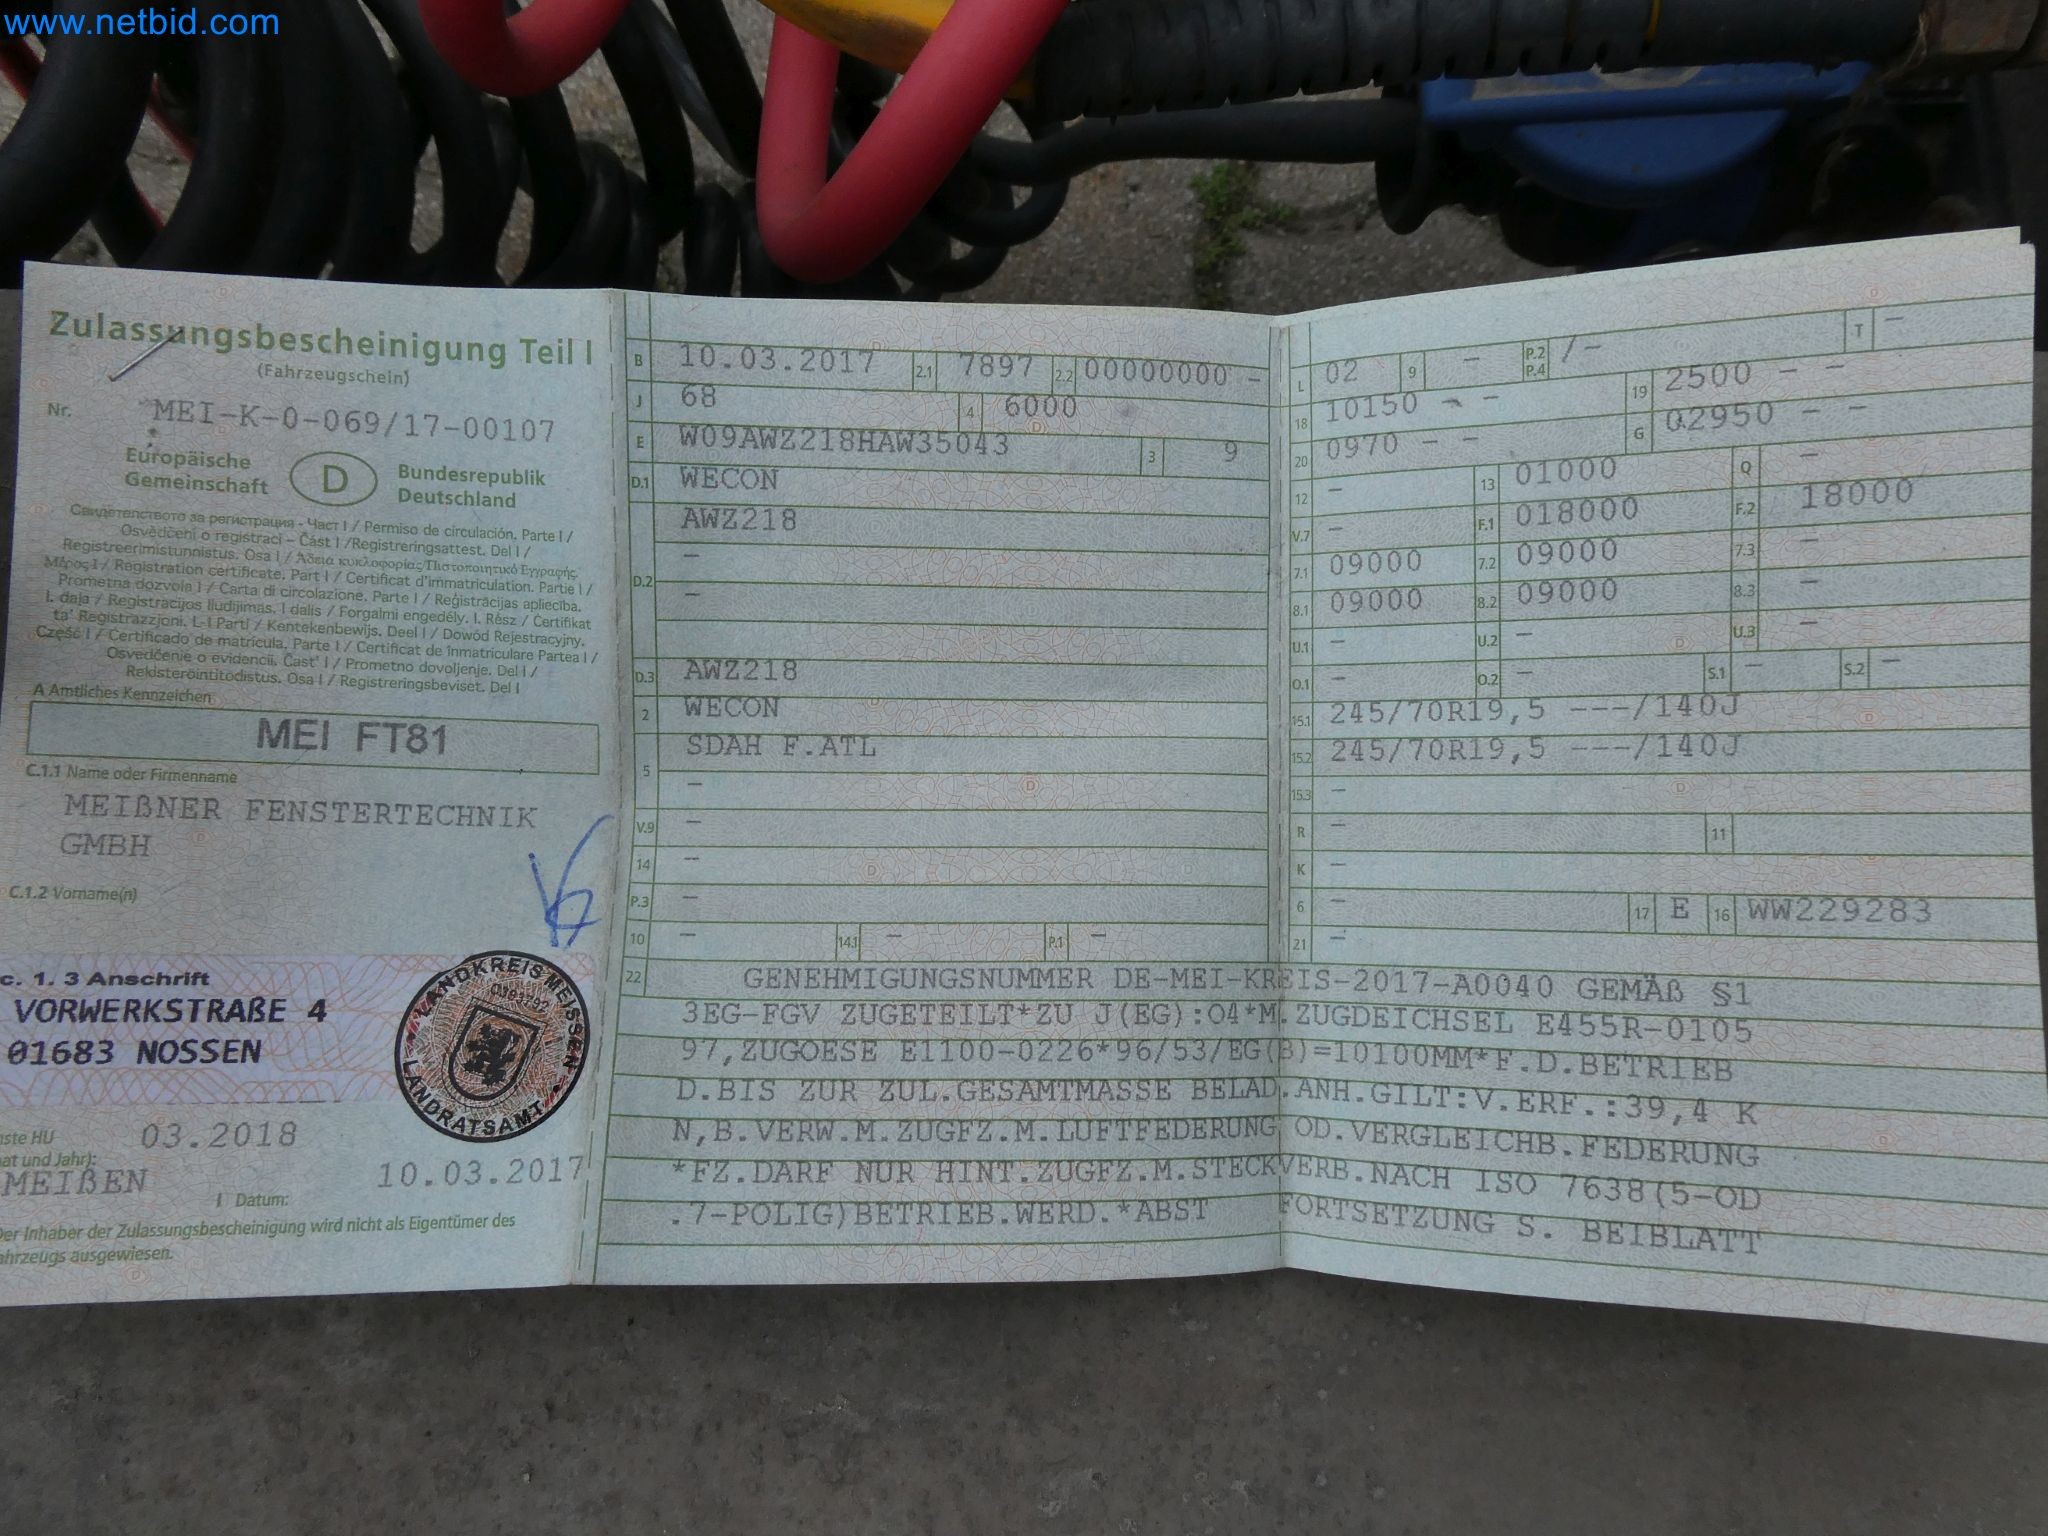 www.netbid.com
Zulassungsbescheinigung Teil I
(Fahrzeugschein)
Nr. MEI-K-0-069/17-00107
Europäische
Gemeinschaft
D
Bundesrepublik
Deutschland
Свидетелството за регистрация - Част I / Permiso de circulación. Parte I /
Osvědčení o registraci – Část I / Registreringsattest. Del I /
Registreerimistunnistus. Osa I / Άδεια κυκλοφορίας/Πιστοποιητικό Εγγραφής.
Μέρος I / Registration certificate. Part I / Certificat d'immatriculation. Partie I /
Prometna dozvola I / Carta di circolazione. Parte I / Reģistrācijas apliecība.
I. daļa / Registracijos liudijimas. I dalis / Forgalmi engedély. I. Rész / Ċertifikat
ta' Reġistrazzjoni. L-I Parti / Kentekenbewijs. Deel I / Dowód Rejestracyjny.
Część I / Certificado de matrícula. Parte I / Certificat de înmatriculare Partea I /
Osvedčenie o evidencii. Časť I / Prometno dovoljenje. Del I /
Rekisteröintitodistus. Osa I / Registreringsbeviset. Del I
A Amtliches Kennzeichen
MEI FT81
C.1.1 Name oder Firmenname
MEIßNER FENSTERTECHNIK
GMBH
C.1.2 Vorname(n)
c. 1. 3 Anschrift
VORWERKSTRAßE 4
01683 NOSSEN
LANDKREIS MEISSEN
LANDRATSAMT
HU 03.2018
und Jahr):
MEIßEN 10.03.2017
I Datum:
Der Inhaber der Zulassungsbescheinigung wird nicht als Eigentümer des
ahrzeugs ausgewiesen.
B 10.03.2017 2.1 7897 2.2 00000000 -
J 68 4 6000
E W09AWZ218HAW35043 3 9
D.1 WECON
AWZ218
-
D.2 -
D.3 AWZ218
2 WECON
SDAH F.ATL
5 -
V.9 -
14 -
P.3 -
10 - 14.1 - P.1 -
L 02 9 - P.2 P.4 /- T -
18 10150 - - 19 2500 - -
20 0970 - - G 02950 - -
12 - 13 01000 Q -
V.7 - F.1 018000 F.2 18000
7.1 09000 7.2 09000 7.3 -
8.1 09000 8.2 09000 8.3 -
U.1 - U.2 - U.3 -
O.1 - O.2 - S.1 - S.2 -
15.1 245/70R19,5 ---/140J
15.2 245/70R19,5 ---/140J
15.3 -
R - 11
K -
6 - 17 E 16 WW229283
21 -
22 GENEHMIGUNGSNUMMER DE-MEI-KREIS-2017-A0040 GEMÄß §1
3EG-FGV ZUGETEILT*ZU J(EG):O4*M.ZUGDEICHSEL E455R-0105
97,ZUGOESE E1100-0226*96/53/EG(B)=10100MM*F.D.BETRIEB
D.BIS ZUR ZUL.GESAMTMASSE BELAD.ANH.GILT:V.ERF.:39,4 K
N,B.VERW.M.ZUGFZ.M.LUFTFEDERUNG OD.VERGLEICHB.FEDERUNG
*FZ.DARF NUR HINT.ZUGFZ.M.STECKVERB.NACH ISO 7638(5-OD
.7-POLIG)BETRIEB.WERD.*ABST FORTSETZUNG S. BEIBLATT